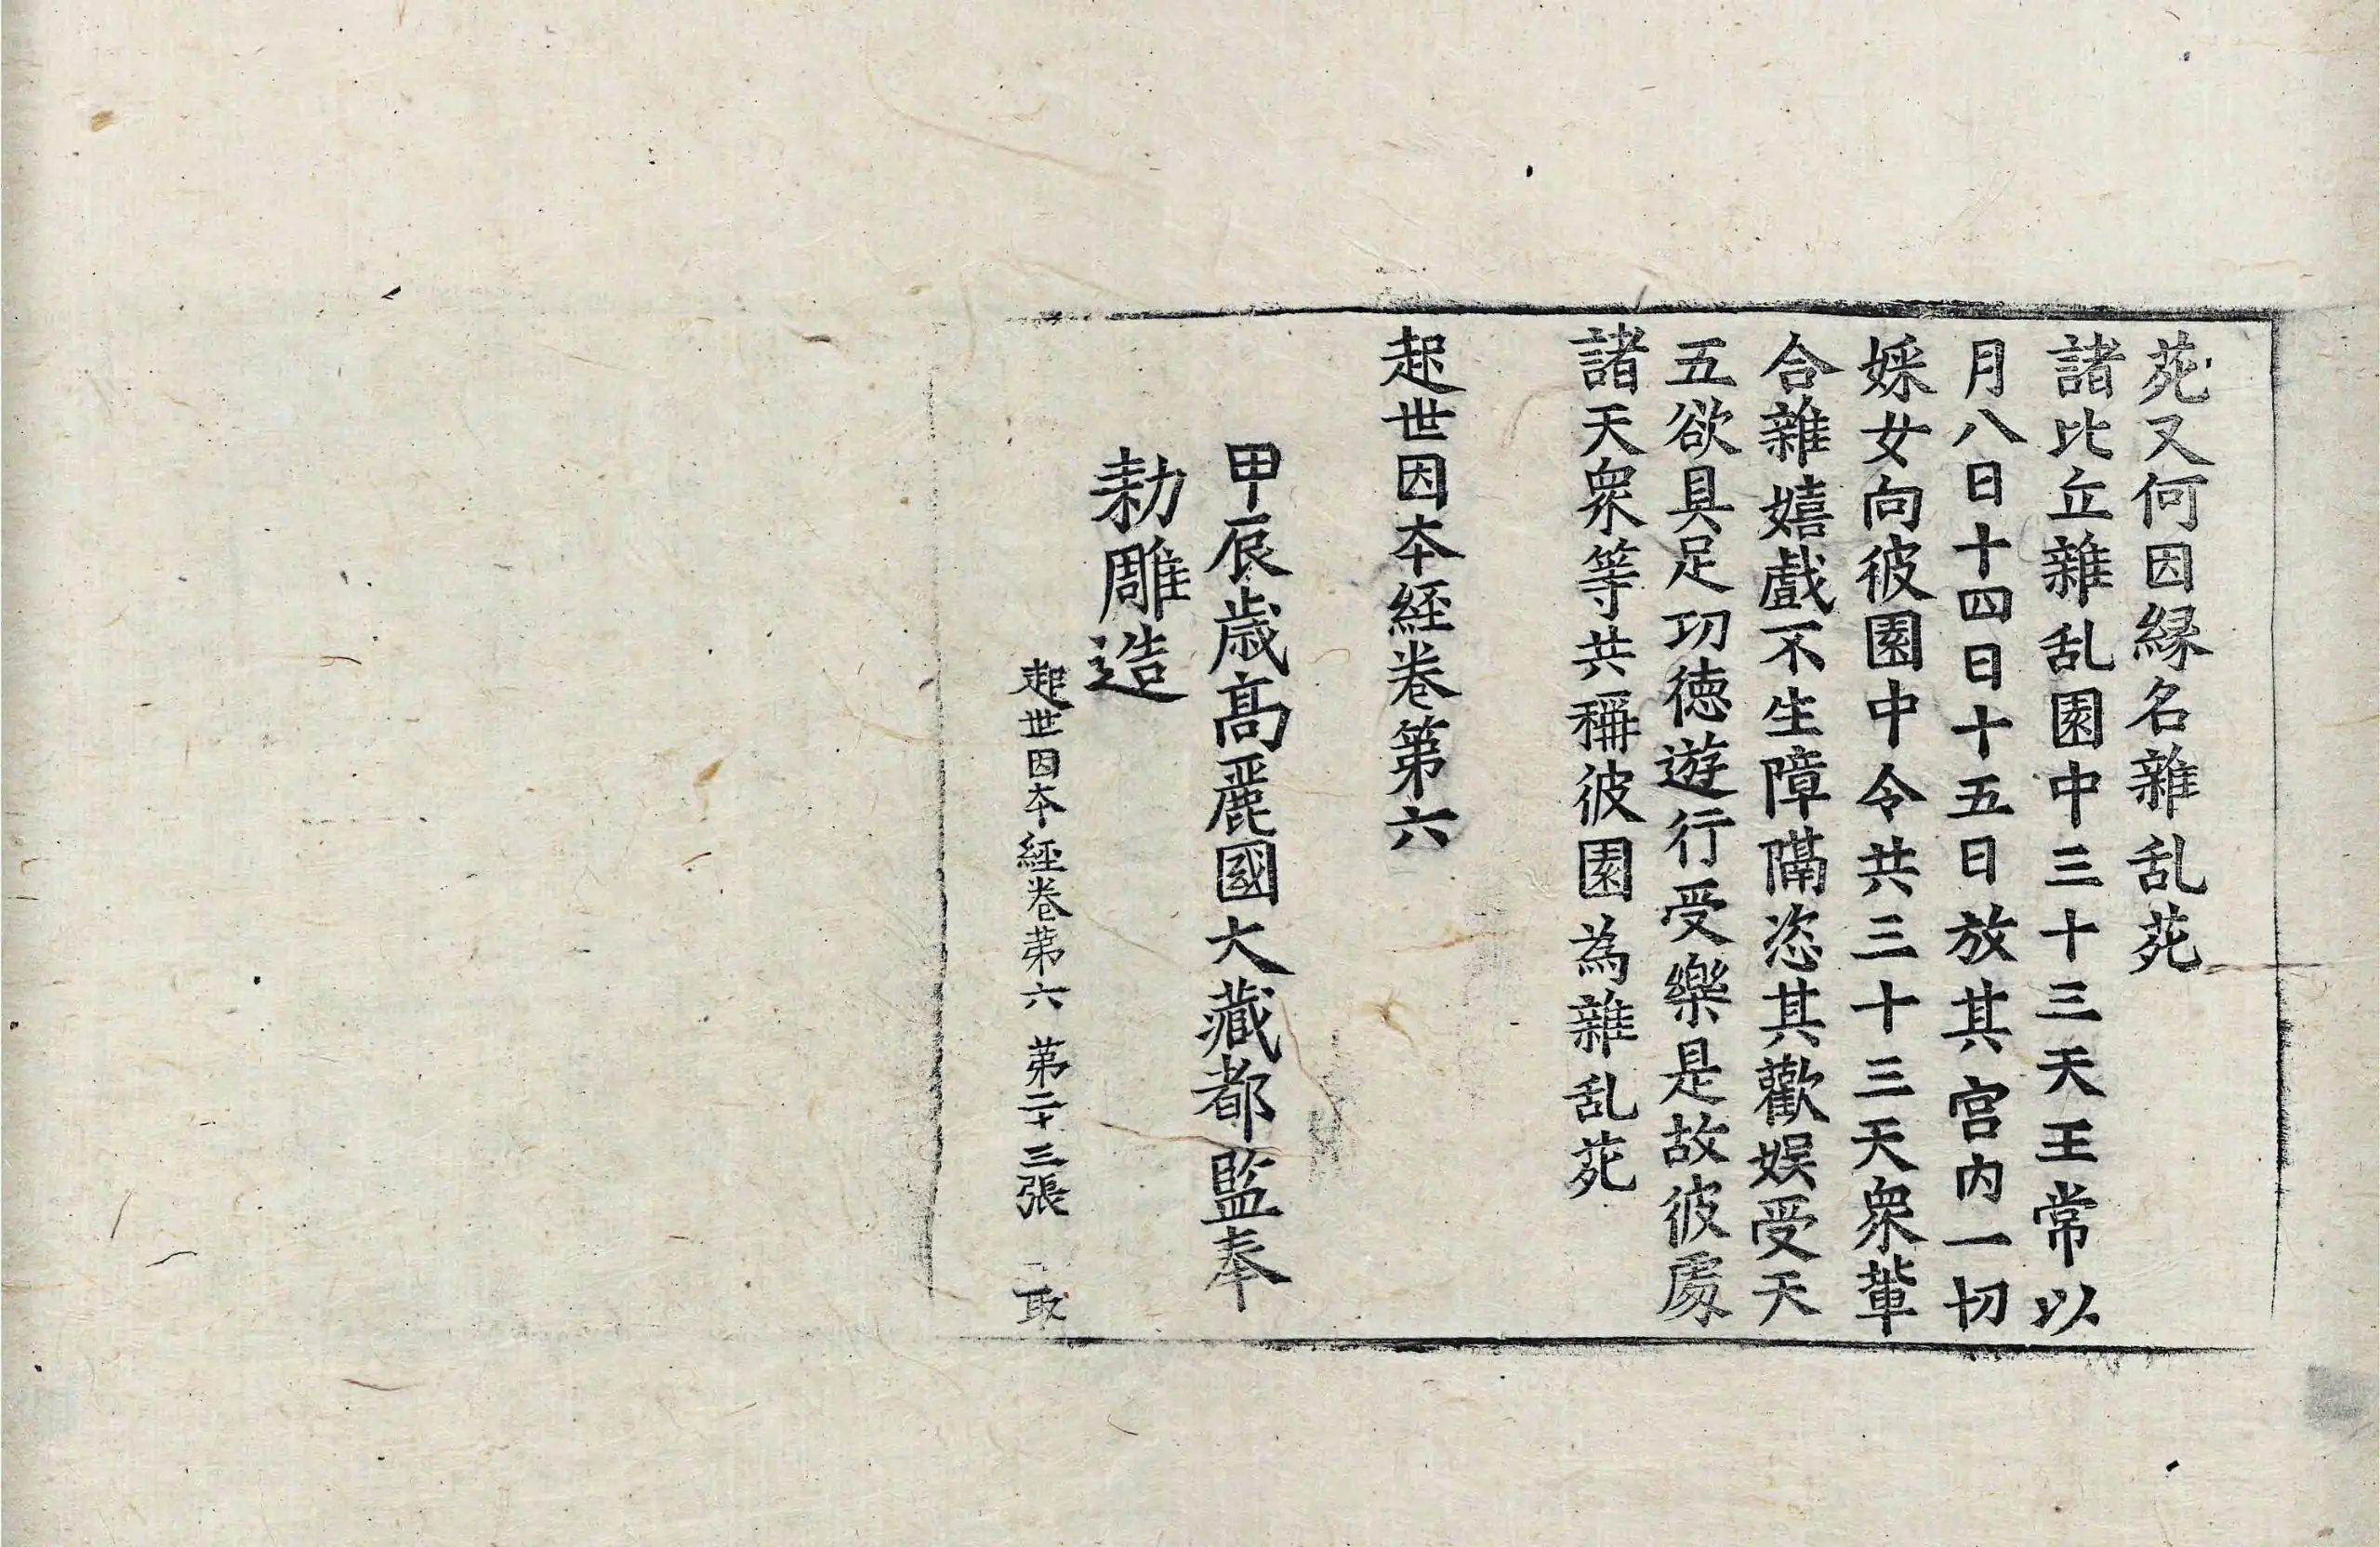 苑又何因縁名雜乱苑
諸比丘雜乱園中三十三天王常以
月八日十四日十五日放其宫内一切
婇女向彼園中令共三十三天衆軰
合雜嬉戲不生障隔恣其歡娱受天
五欲具足功徳遊行受樂是故彼處
諸天衆等共稱彼園為雜乱苑
起世因夲經卷第六
甲辰歳髙麗國大藏都監奉
勑雕造
起世因夲經卷第六 第二十三張